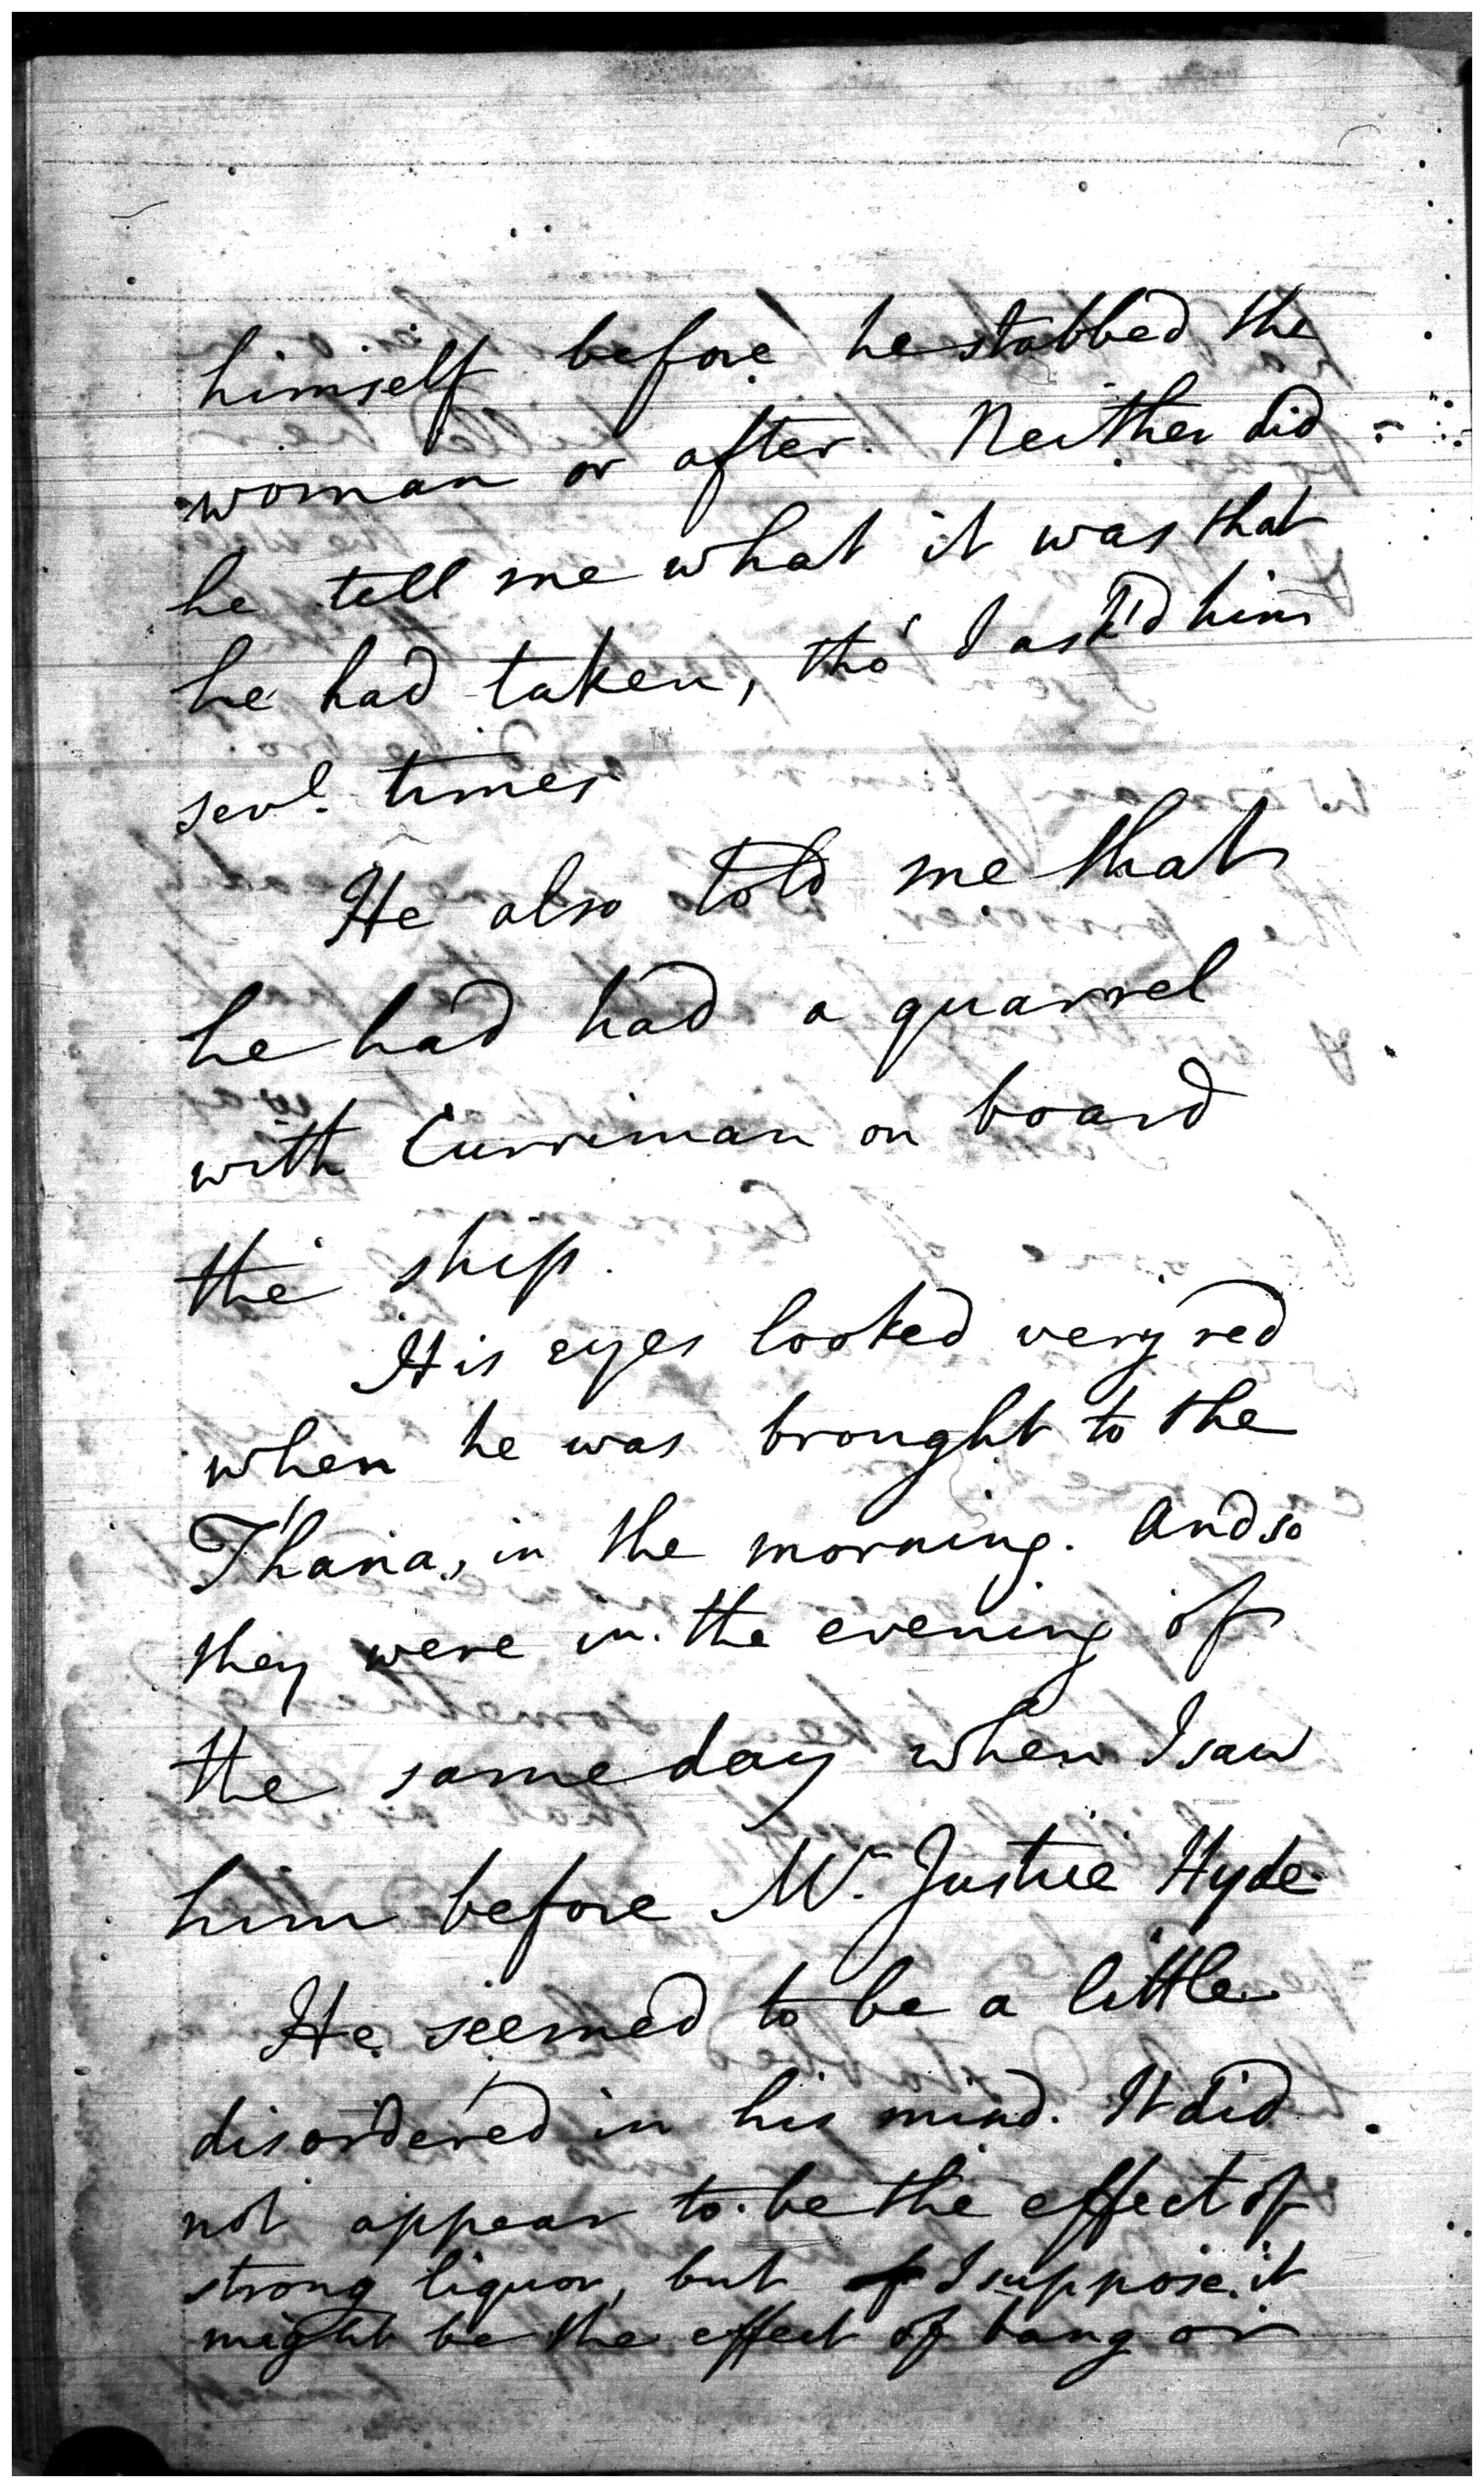 himself before he stabbed the
woman or after. Neither did
he tell me what it was that
he had taken, tho' I ask'd him
sevl. times
He also told me that
he had had a quarrel
with Curriman on board
the ship.
His eyes looked very red
when he was brought to the
Thana, in the morning. And so
they were in the evening of
the same day when I saw
him before Mr. Justice Hyde
He seemed to be a little
disordered in his mind. It did
not appear to be the effect of
strong liquor, but I suppose it
might be the effect of bang or